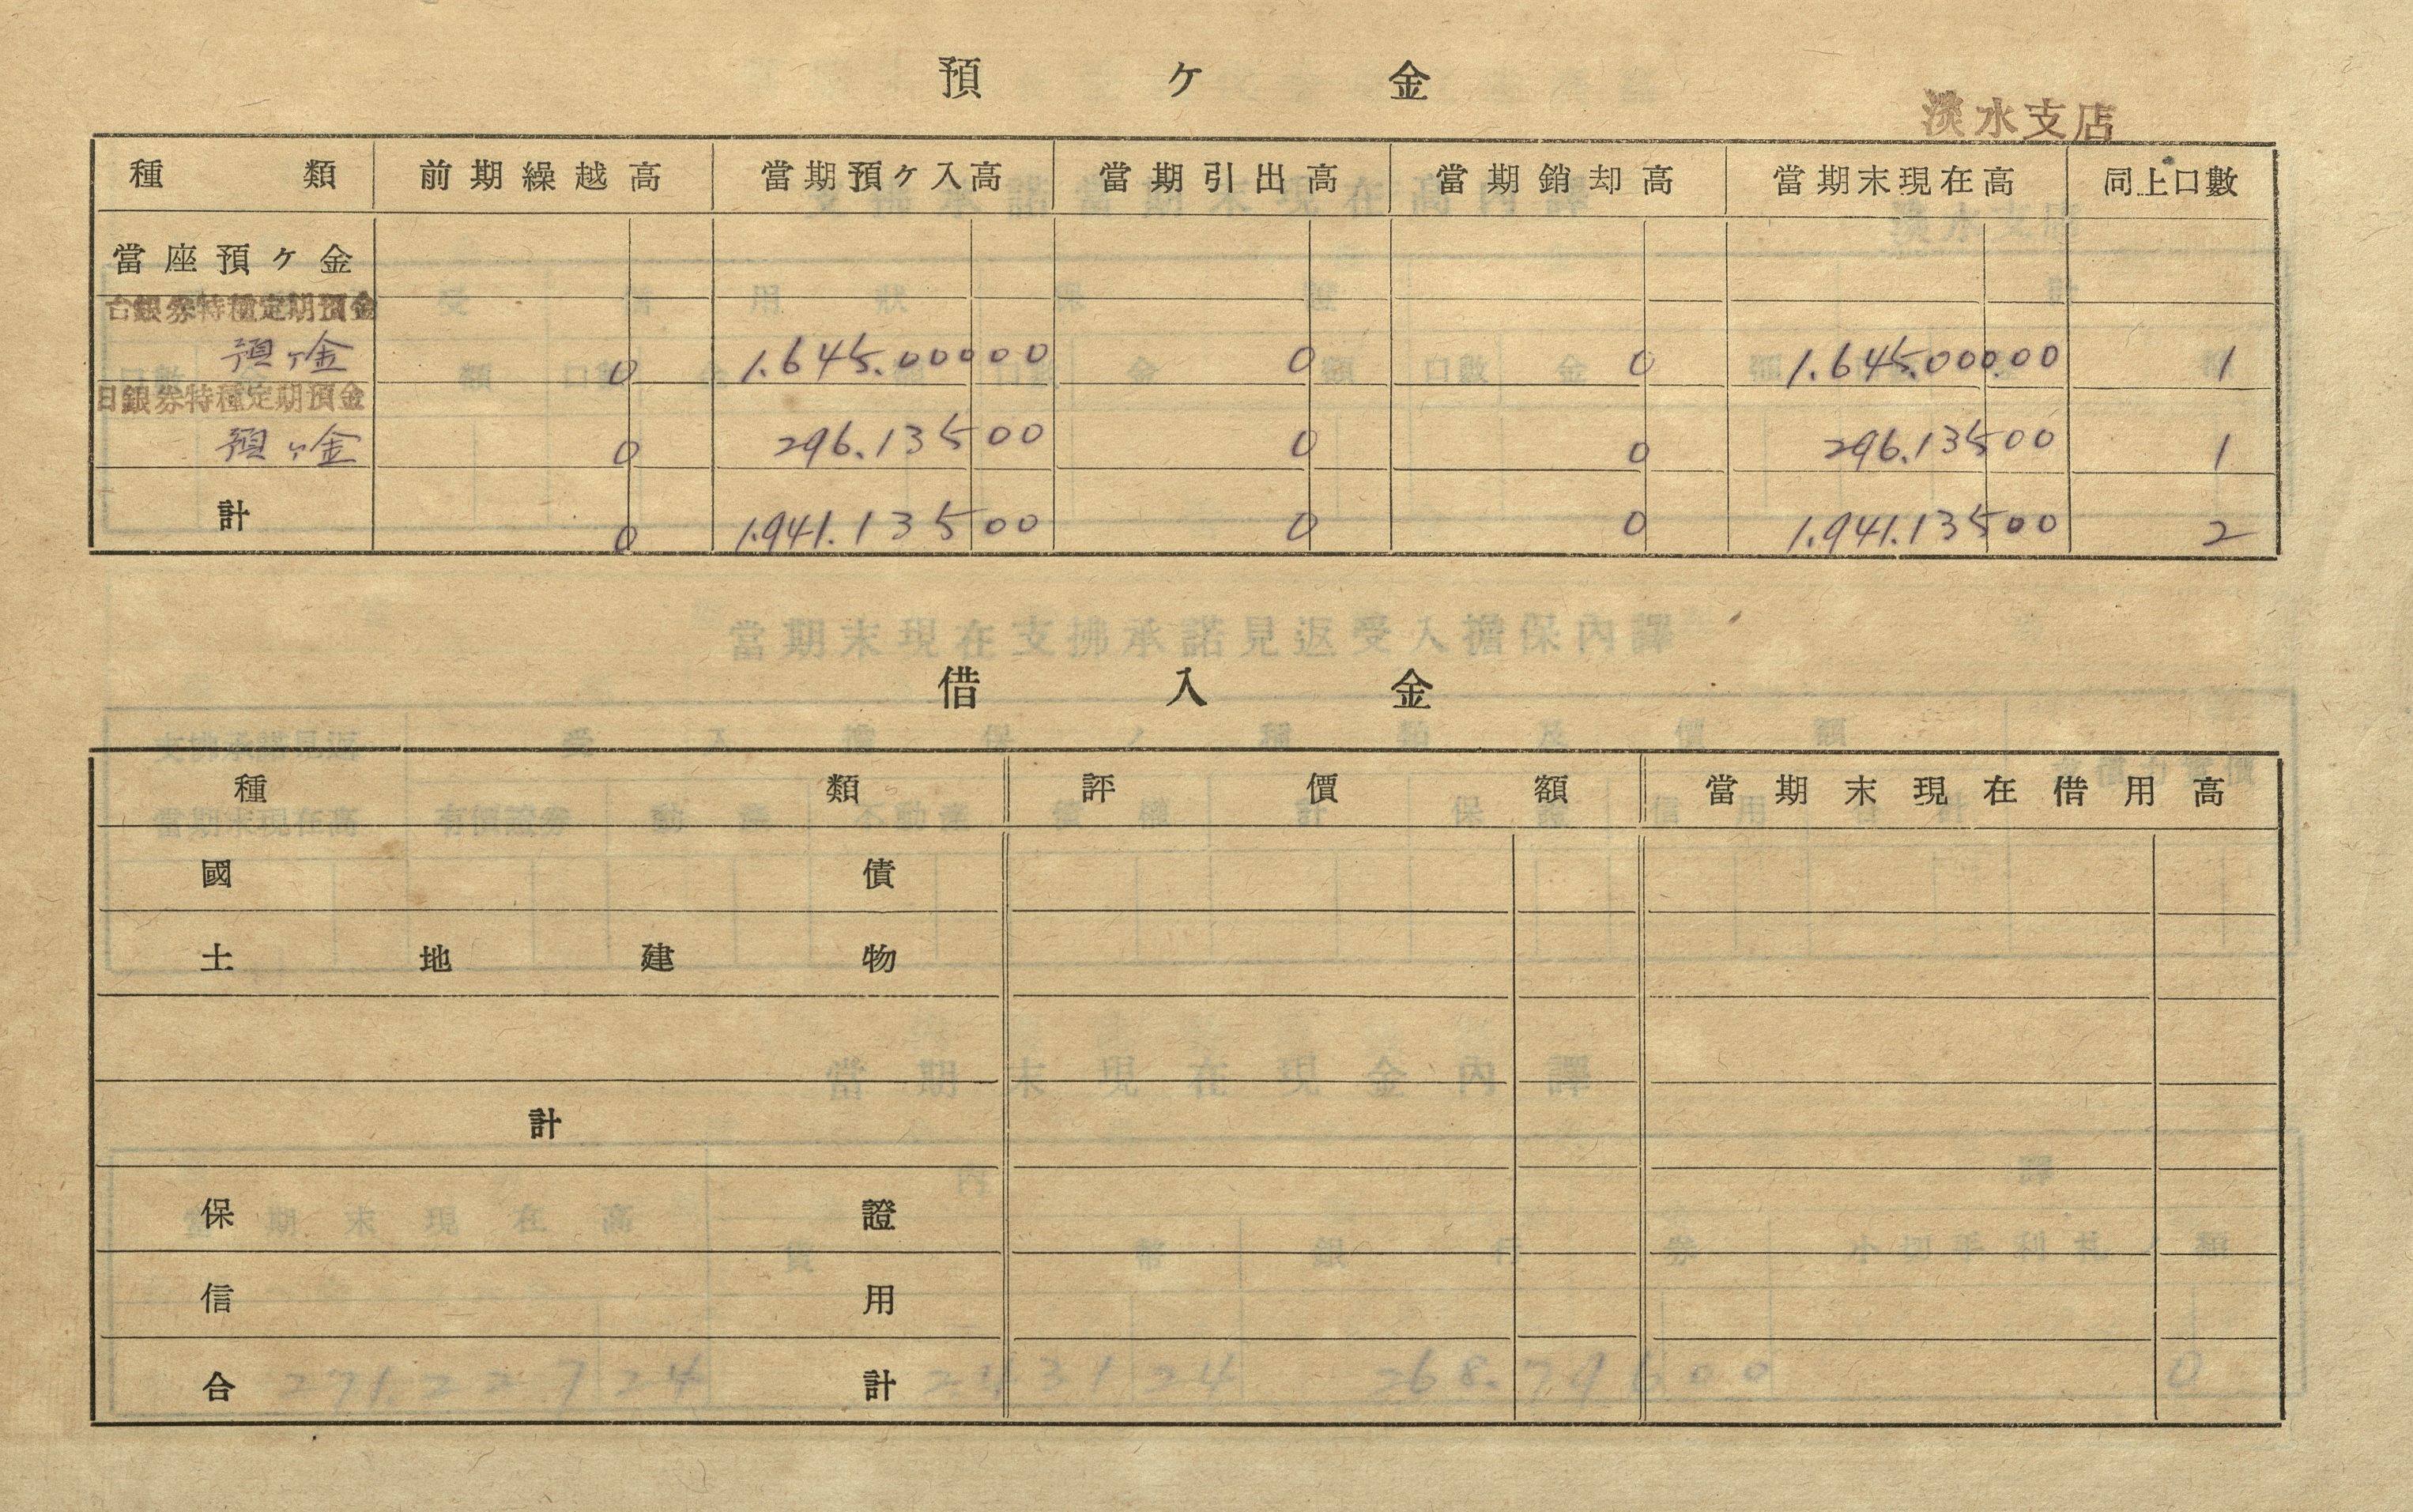 預ケ金
淡水支店
種類 前期繰越高 當期預ケ入高 當期引出高 當期銷却高 當期末現在高 同上口數
當座預ケ金
台銀券特種定期預金
預ケ金 0 1.645.000 00 0 0 1.645.000.00 1
日銀券特種定期預金
預ケ金 0 296.135 00 0 0 296.135 00 1
計 0 1.941.135 00 0 0 1.941.135 00 2
借入金
種類 評價額 當期末現在借用高
國債
土地建物
計
保證
信用
合計